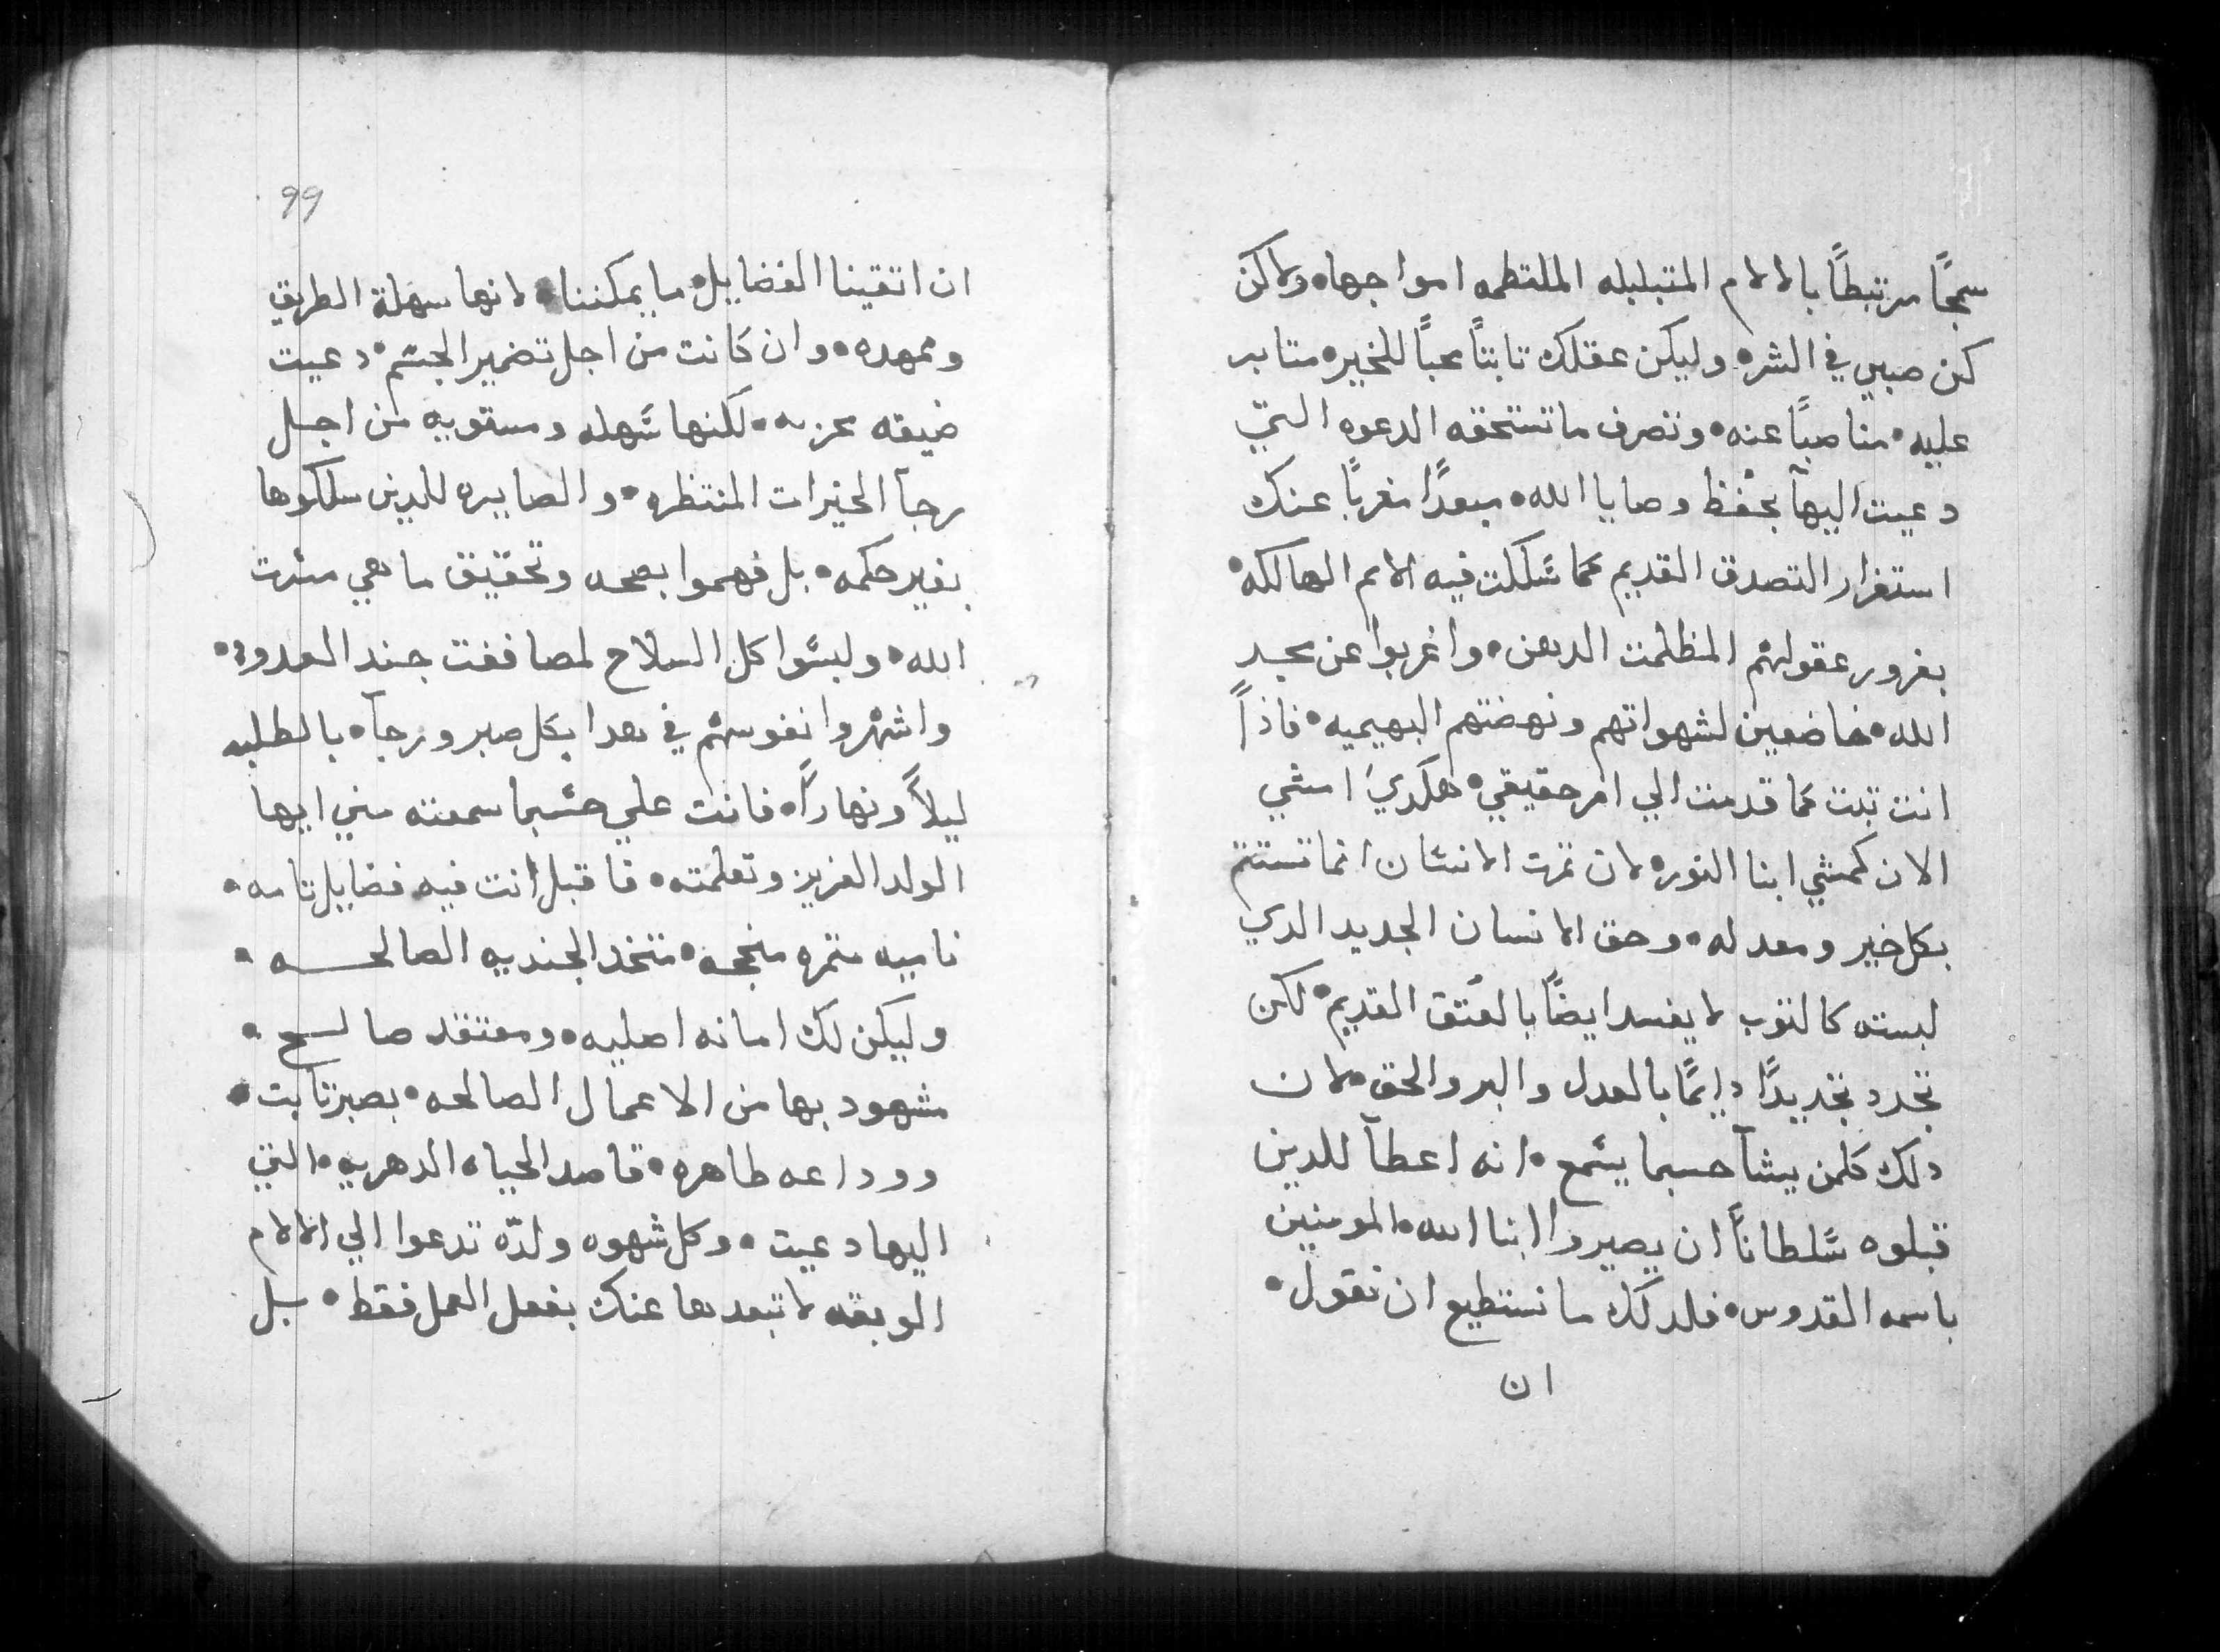 سمجًا مرتبطًا بالالام المتبلبله الملتطمه امواجها• ولاكن
كن صبي في الشره• وليكن عقلك تابتًا محبًا للخير• متابر
عليه• مناصبًا عنه• وتصرف ماتستحقه الدعوه التي
دعيت اليها بحفظ وصايا الله• مبعدًا مغربًا عنك
استغرار التصدق القديم مما شكلت فيه الامم الهالكه•
بغرور عقولهم المظلمت الدهن• واغربوا عن مجد
الله• خاضعين لشهواتهم ونهضتهم البهيميه• فاذاً
انت تبت مما قدمت الي امر حقيقي• هكدي امشي
الان كمشي ابنا النور• لان تمرت الانسان انما تستتم
بكل خير ومعدله• وحق الانسان الجديد الدي
لبسته كالتوب لا يفسد ايضًا بالعتق القديم• لكن
تجدد تجديدًا دايمًا بالعدل والبر والحق• لان
دلك كلمن يشآ حسبما يسمع• انه اعطآ للدين
قبلوه سلطانًا ان يصيروا ابنا الله• المومنين
باسمه القدوس• فلدلك ما نستطيع ان نقول•
ان
99
ان اتقينا الفضايل• ما يمكننا• لانها سهلة الطريق
وممهده• وان كانت من اجل تضمير الجسم• دعيت
ضيقه محزنه• لكنها سهله ومستويه من اجل
رجآ الخيرات المنتظره• والصايره للدين سلكوها
بغير حكمه• بل فهموا بصحه وتحقيق ما هي مسرت
الله• ولبسوا كل السلاح لمصاففت جند العدو•
واشهروا نفوسهم في هدا بكل صبر ورجآ• بالطلبه
ليلاً ونهاراً• فانت علي حسبما سمعته مني ايها
الولد العزيز وتعلمته• فاقبل انت فيه فضايل تامه•
ناميه متمره منججه• متخد الجنديه الصالحه•
وليكن لك امانه اصليه• ومعتقد صالح•
مشهود بها من الاعمال الصالحه• بصبر تابت•
ووداعه طاهره• قاصد الحياه الدهريه• التي
اليها دعيت• وكل شهوه ولدّه تدعوا الي الالام
الوبقه لا تبعدها عنك بفعل العمل فقط• بل